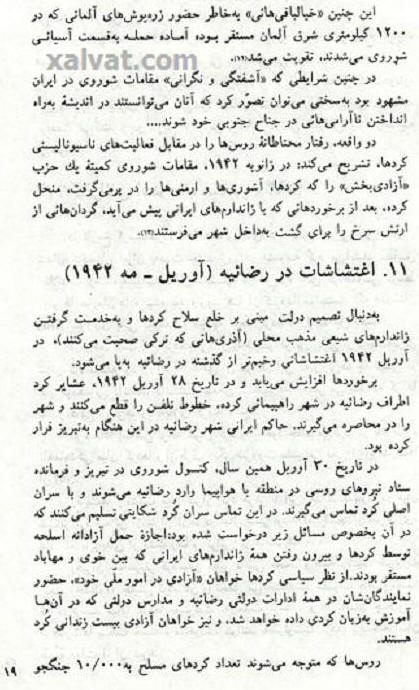 این چنین «خیالبافی‌هائی» به‌خاطر حضور زره‌پوش‌های آلمانی که در
۱۲۰۰ کیلومتری شرق آلمان مستقر بوده آماده حمله به‌قسمت آسیائی
شوروی می‌شدند، تقویت می‌شد(۱۲).
xalvat.com
در چنین شرایطی که «آشفتگی و نگرانی» مقامات شوروی در ایران
مشهود بود به‌سختی می‌توان تصوّر کرد که آنان می‌توانستند در اندیشهٔ به‌راه
انداختن ناآرامی‌هائی در جناح جنوبی خود شوند....
دو واقعه، رفتار محتاطانهٔ روس‌ها را در مقابل فعالیت‌های ناسیونالیستی
کردها، تشریح می‌کند: در ژانویه ۱۹۴۲، مقامات شوروی کمیتهٔ یك حزب
«آزادی‌بخش» را که کردها، آشوری‌ها و ارمنی‌ها را در برمی‌گرفت، منحل
کرده، بعد از برخوردهائی که با ژاندارم‌های ایرانی پیش می‌آید، گردان‌هائی از
ارتش سرخ را برای گشت به‌داخل شهر می‌فرستند(۱۳).
۱۱. اغتشاشات در رضائیه (آوریل ـ مه ۱۹۴۲)
به‌دنبال تصمیم دولت مبنی بر خلع سلاح کردها و به‌خدمت گرفتن
ژاندارم‌های شیعی مذهب محلی (آذری‌هائی که ترکی صحبت می‌کنند)، در
آوریل ۱۹۴۲ اغتشاشاتی وخیم‌تر از گذشته در رضائیه به‌پا می‌شود.
برخوردها افزایش می‌یابد و در تاریخ ۲۸ آوریل ۱۹۴۲، عشایر کرد
اطراف رضائیه در شهر راهپیمائی کرده، خطوط تلفن را قطع می‌کنند و شهر
را در محاصره می‌گیرند. حاکم ایرانی شهر رضائیه در این هنگام به‌تبریز فرار
کرده بود.
در تاریخ ۳۰ آوریل همین سال، کنسول شوروی در تبریز و فرمانده
ستاد نیروهای روسی در منطقه با هواپیما وارد رضائیه می‌شوند و با سران
اصلی کُرد تماس می‌گیرند. در این تماس سران کُرد شکایتی تسلیم می‌کنند که
در آن بخصوص مسائل زیر درخواست شده بود:اجازهٔ حمل آزادانه اسلحه
توسط کردها و بیرون رفتن همهٔ ژاندارم‌های ایرانی که بین خوی و مهاباد
مستقر بودند.از نظر سیاسی کردها خواهان «آزادی در امور ملّی خود»، حضور
نمایندگان‌شان در همهٔ ادارات دولتی رضائیه و مدارس دولتی که در آن‌ها
آموزش به‌زبان کردی داده خواهد شد، و نیز خواهان آزادی بیست زندانی کُرد
هستند.
روس‌ها که متوجه می‌شوند تعداد کردهای مسلح به‌۱۰/۰۰۰ جنگجو
۱۹